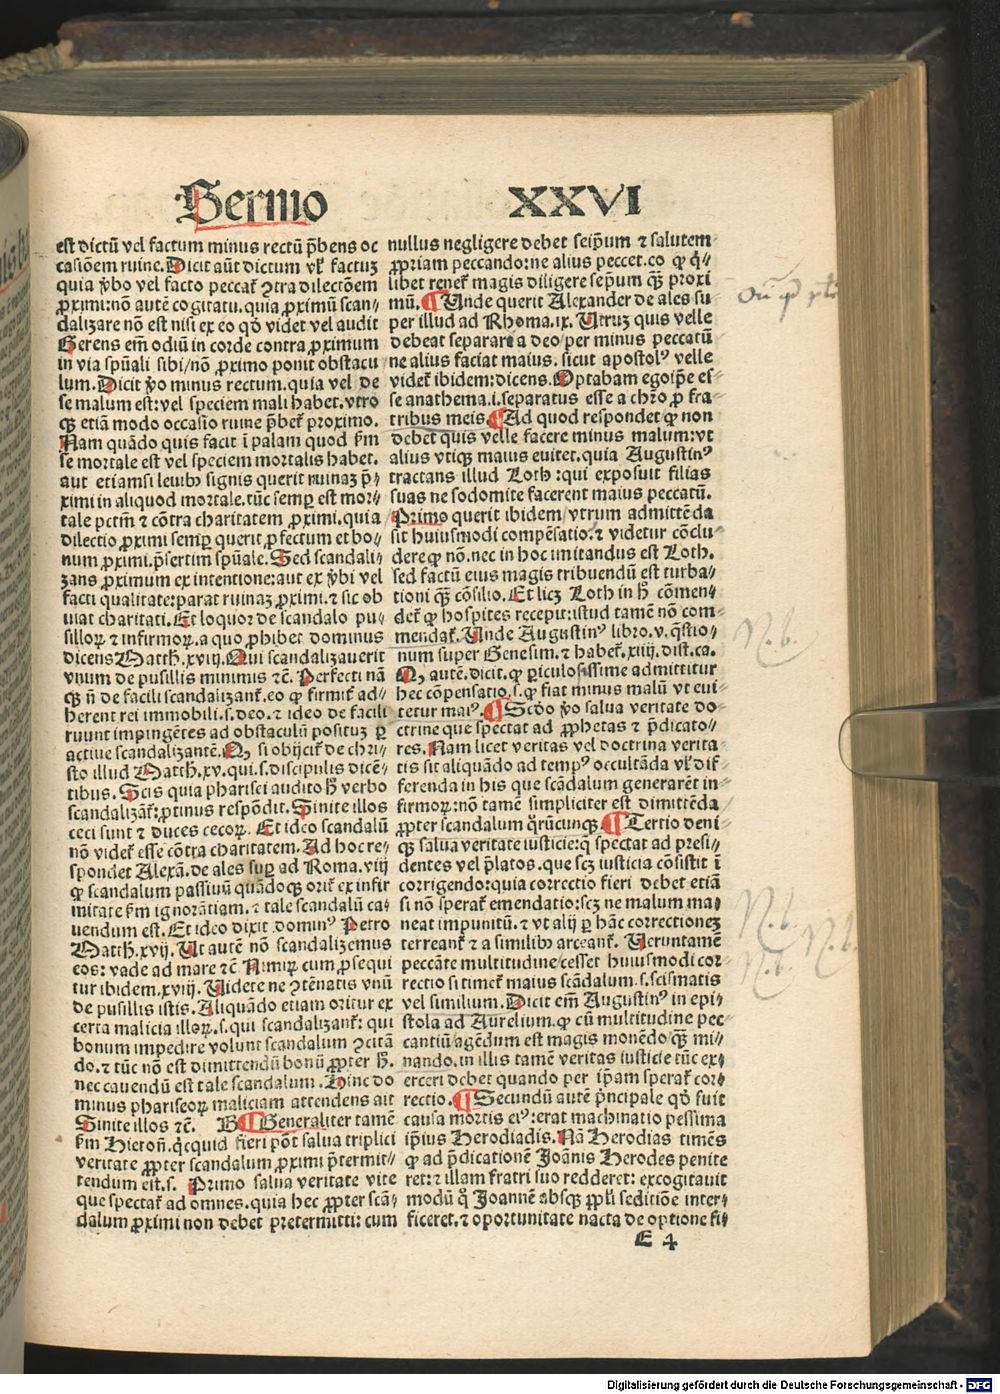 Sermo XXVI
est dictū vel factum minus rectū p̄bens oc
casiōem ruine. Dicit aūt dictum vł factuȝ
quia v̾bo vel facto peccat̄ ꝯtra dilectōem
ꝓximi: nō autē cogitatu. quia ꝓximū scan⸗
dalizare nō est nisi ex eo qd̾ videt vel audit
Gerens em̄ odiū in corde contra ꝓximum
in via spūali sibi / nō ꝓximo ponit obstacu
lum. Dicit v̾o minus rectum. quia vel de
se malum est: vel speciem mali habet. vtro
qꝫ etiā modo occasio ruine p̄bet̄ proximo.
Nam quādo quis facit ī palam quod ẜm
se mortale est vel speciem mortalis habet.
aut etiamsi leuibꝫ signis querit ruinaȝ ꝓ⸗
ximi in aliquod mortale. tūc semꝑ est mor⸗
tale pctm̄ ⁊ cōtra charitatem ꝓximi. quia
dilectio ꝓximi semꝑ querit ꝓfectum et bo⸗
num ꝓximi. p̄sertim spūale. Sed scandali⸗
zans ꝓximum ex intentione: aut ex v̾bi vel
facti qualitate: parat ruinaȝ ꝓximi. ⁊ sic ob
uiat charitati. Et loquor de scandalo pu⸗
silloꝝ ⁊ infirmoꝝ. a quo ꝓhibet dominus
dicens Matth. xviij. Qui scandalizauerit
vnum de pusillis minimis ⁊c̄. Perfecti nā
qꝫ n̄ de facili scandalizant̄. eo ꝙ firmit̄ ad⸗
herent rei immobili. s. deo. ⁊ ideo de facili
ruunt impingētes ad obstaculū posituȝ ꝑ
actiue scandalizantē. Qȝ si obijcit̄ de chri⸗
sto illud Matth. xv. qui. s. discipulis dicē⸗
tibus. Scis quia pharisei audito h̾ verbo
scandalizāt̄: ꝓtinus respōdit. Sinite illos
ceci sunt ⁊ duces cecoꝝ. Et ideo scandalū
nō videt̄ esse cōtra charitatem. Ad hoc re⸗
spondet Alexā. de ales suꝑ ad Roma. viij
ꝙ scandalum passiuū quādoqꝫ orit̄ ex infir
mitate ẜm ignorātiam. ⁊ tale scandalū ca⸗
uendum est. Et ideo dixit dominꝰ Petro
Matth. xvij. Ut autē nō scandalizemus
eos: vade ad mare ⁊c̄ Nimiꝝ cum ꝓsequi
tur ibidem. xviij. Uidete ne ꝯtēnatis vnū
de pusillis istis. Aliquādo etiam oritur ex
certa malicia illoꝝ. s. qui scandalizant̄: qui
bonum impedire volunt scandalum ꝯcitā
do. ⁊ tūc nō est dimittendū bonū ꝓpter h̾.
nec cauendū est tale scandalum. Hinc do
minus phariseoꝝ maliciam attendens ait
Sinite illos ⁊c̄. B ¶ Generaliter tamē
ẜm Hieroñ. q̇cquid fieri pōt salua triplici
veritate ꝓpter scandalum ꝓximi p̄termit⸗
tendum est. s. Primo salua veritate vite
que spectat̄ ad omnes. quia hec ꝓpter scā⸗
dalum ꝓximi non debet pretermitti: cum
nullus negligere debet seip̄um ⁊ salutem
ꝓpriam peccando: ne alius peccet. eo ꝙ q̇⸗
libet tenet̄ magis diligere sep̄um qꝫ̄ proxi
mū. ¶ Unde querit Alexander de ales su
per illud ad Rhoma. ix. Utruȝ quis velle
debeat separari a deo / per minus peccatū
ne alius faciat maius. sicut apostolꝰ velle
videt̄ ibidem: dicens. Optabam ego ip̄e es⸗
se anathema. i. separatus esse a chr̄o ꝓ fra
tribus meis. ¶ Ad quod respondet ꝙ non
debet quis velle facere minus malum: vt
alius vtiqꝫ maius euitet. quia Augustinꝰ
tractans illud Loth: qui exposuit filias
suas ne sodomite facerent maius peccatū.
Primo querit ibidem / vtrum admittēda
sit huiusmodi compēsatio. ⁊ videtur cōclu⸗
dere ꝙ nō. nec in hoc imitandus est Loth.
sed factū eius magis tribuendū est turba⸗
tioni qꝫ̄ cōsilio. Et licȝ Loth in h̾ cōmen⸗
det̄ ꝙ hospites recepit: istud tamē nō com⸗
mendat̄. Unde Augustinꝰ libro. v. q̄stio⸗
num super Genesim. ⁊ habet̄. xiiij. dist. ca.
Qȝ autē. dicit. ꝙ ꝑiculosissime admittitur
hec cōpensatio. s. ꝙ fiat minus malū vt eui⸗
tetur maiꝰ. ¶ Scd̾o v̾o salua veritate do⸗
ctrine que spectat ad ꝓphetas ⁊ p̄dicato⸗
res. Nam licet veritas vel doctrina verita⸗
tis sit aliquādo ad tempꝰ occultāda vł dif⸗
ferenda in his que scādalum generarēt in⸗
firmoꝝ: nō tamē simpliciter est dimittēda
ꝓpter scandalum q̄rūcunqꝫ. ¶ Tertio deni⸗
qꝫ salua veritate iusticie: q̄ spectat ad presi⸗
dentes vel p̄latos. que scȝ iusticia cōsistit ī
corrigendo: quia correctio fieri debet etiā
si nō sperat̄ emendatio: scȝ ne malum ma⸗
neat impunitū. ⁊ vt alij ꝑ hāc correctioneȝ
terreant̄ ⁊ a similibꝫ arceant̄. Ueruntamē
peccāte multitudine / cesset huiusmodi cor⸗
rectio si timet̄ maius scādalum. s. scismatis
vel similium. Dicit em̄ Augustinꝰ in epi⸗
stola ad Aurelium. ꝙ cū multitudine pec⸗
cantiū / agēdum est magis monēdo / qꝫ̄ mi⸗
nando. in illis tamē veritas iusticie tūc ex⸗
erceri debet quando per ip̄am sperat̄ cor⸗
rectio. ¶ Secundū autē p̄ncipale qd̾ fuit
causa mortis eiꝰ: erat machinatio pessima
ip̄ius Herodiadis. Nā Herodias timēs
ꝙ ad p̄dicationē Joānis Herodes penite
ret: ⁊ illam fratri suo redderet: excogitauit
modū q̇ Joannē absqꝫ ppl̄i seditiōe inter⸗
ficeret. ⁊ oportunitate nacta de optione fi⸗
E 4
N. b.
N. b.
N. b.
N. b.
Digitalisierung gefördert durch die Deutsche Forschungsgemeinschaft - DFG